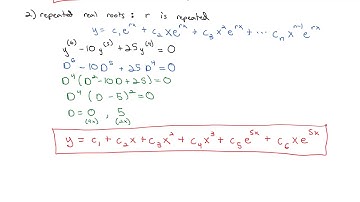 2) repeated real roots : r is repeated
y = c₁e^{rx} + c₂xe^{rx} + c₃x²e^{rx} + ⋯ cₙx^{n-1}e^{rx}
y⁽⁶⁾ - 10y⁽⁵⁾ + 25y⁽⁴⁾ = 0
D⁶ - 10D⁵ + 25D⁴ = 0
D⁴(D² - 10D + 25) = 0
D⁴(D - 5)² = 0
D = 0 , 5
(4x) (2x)
y = c₁ + c₂x + c₃x² + c₄x³ + c₅e^{5x} + c₆xe^{5x}